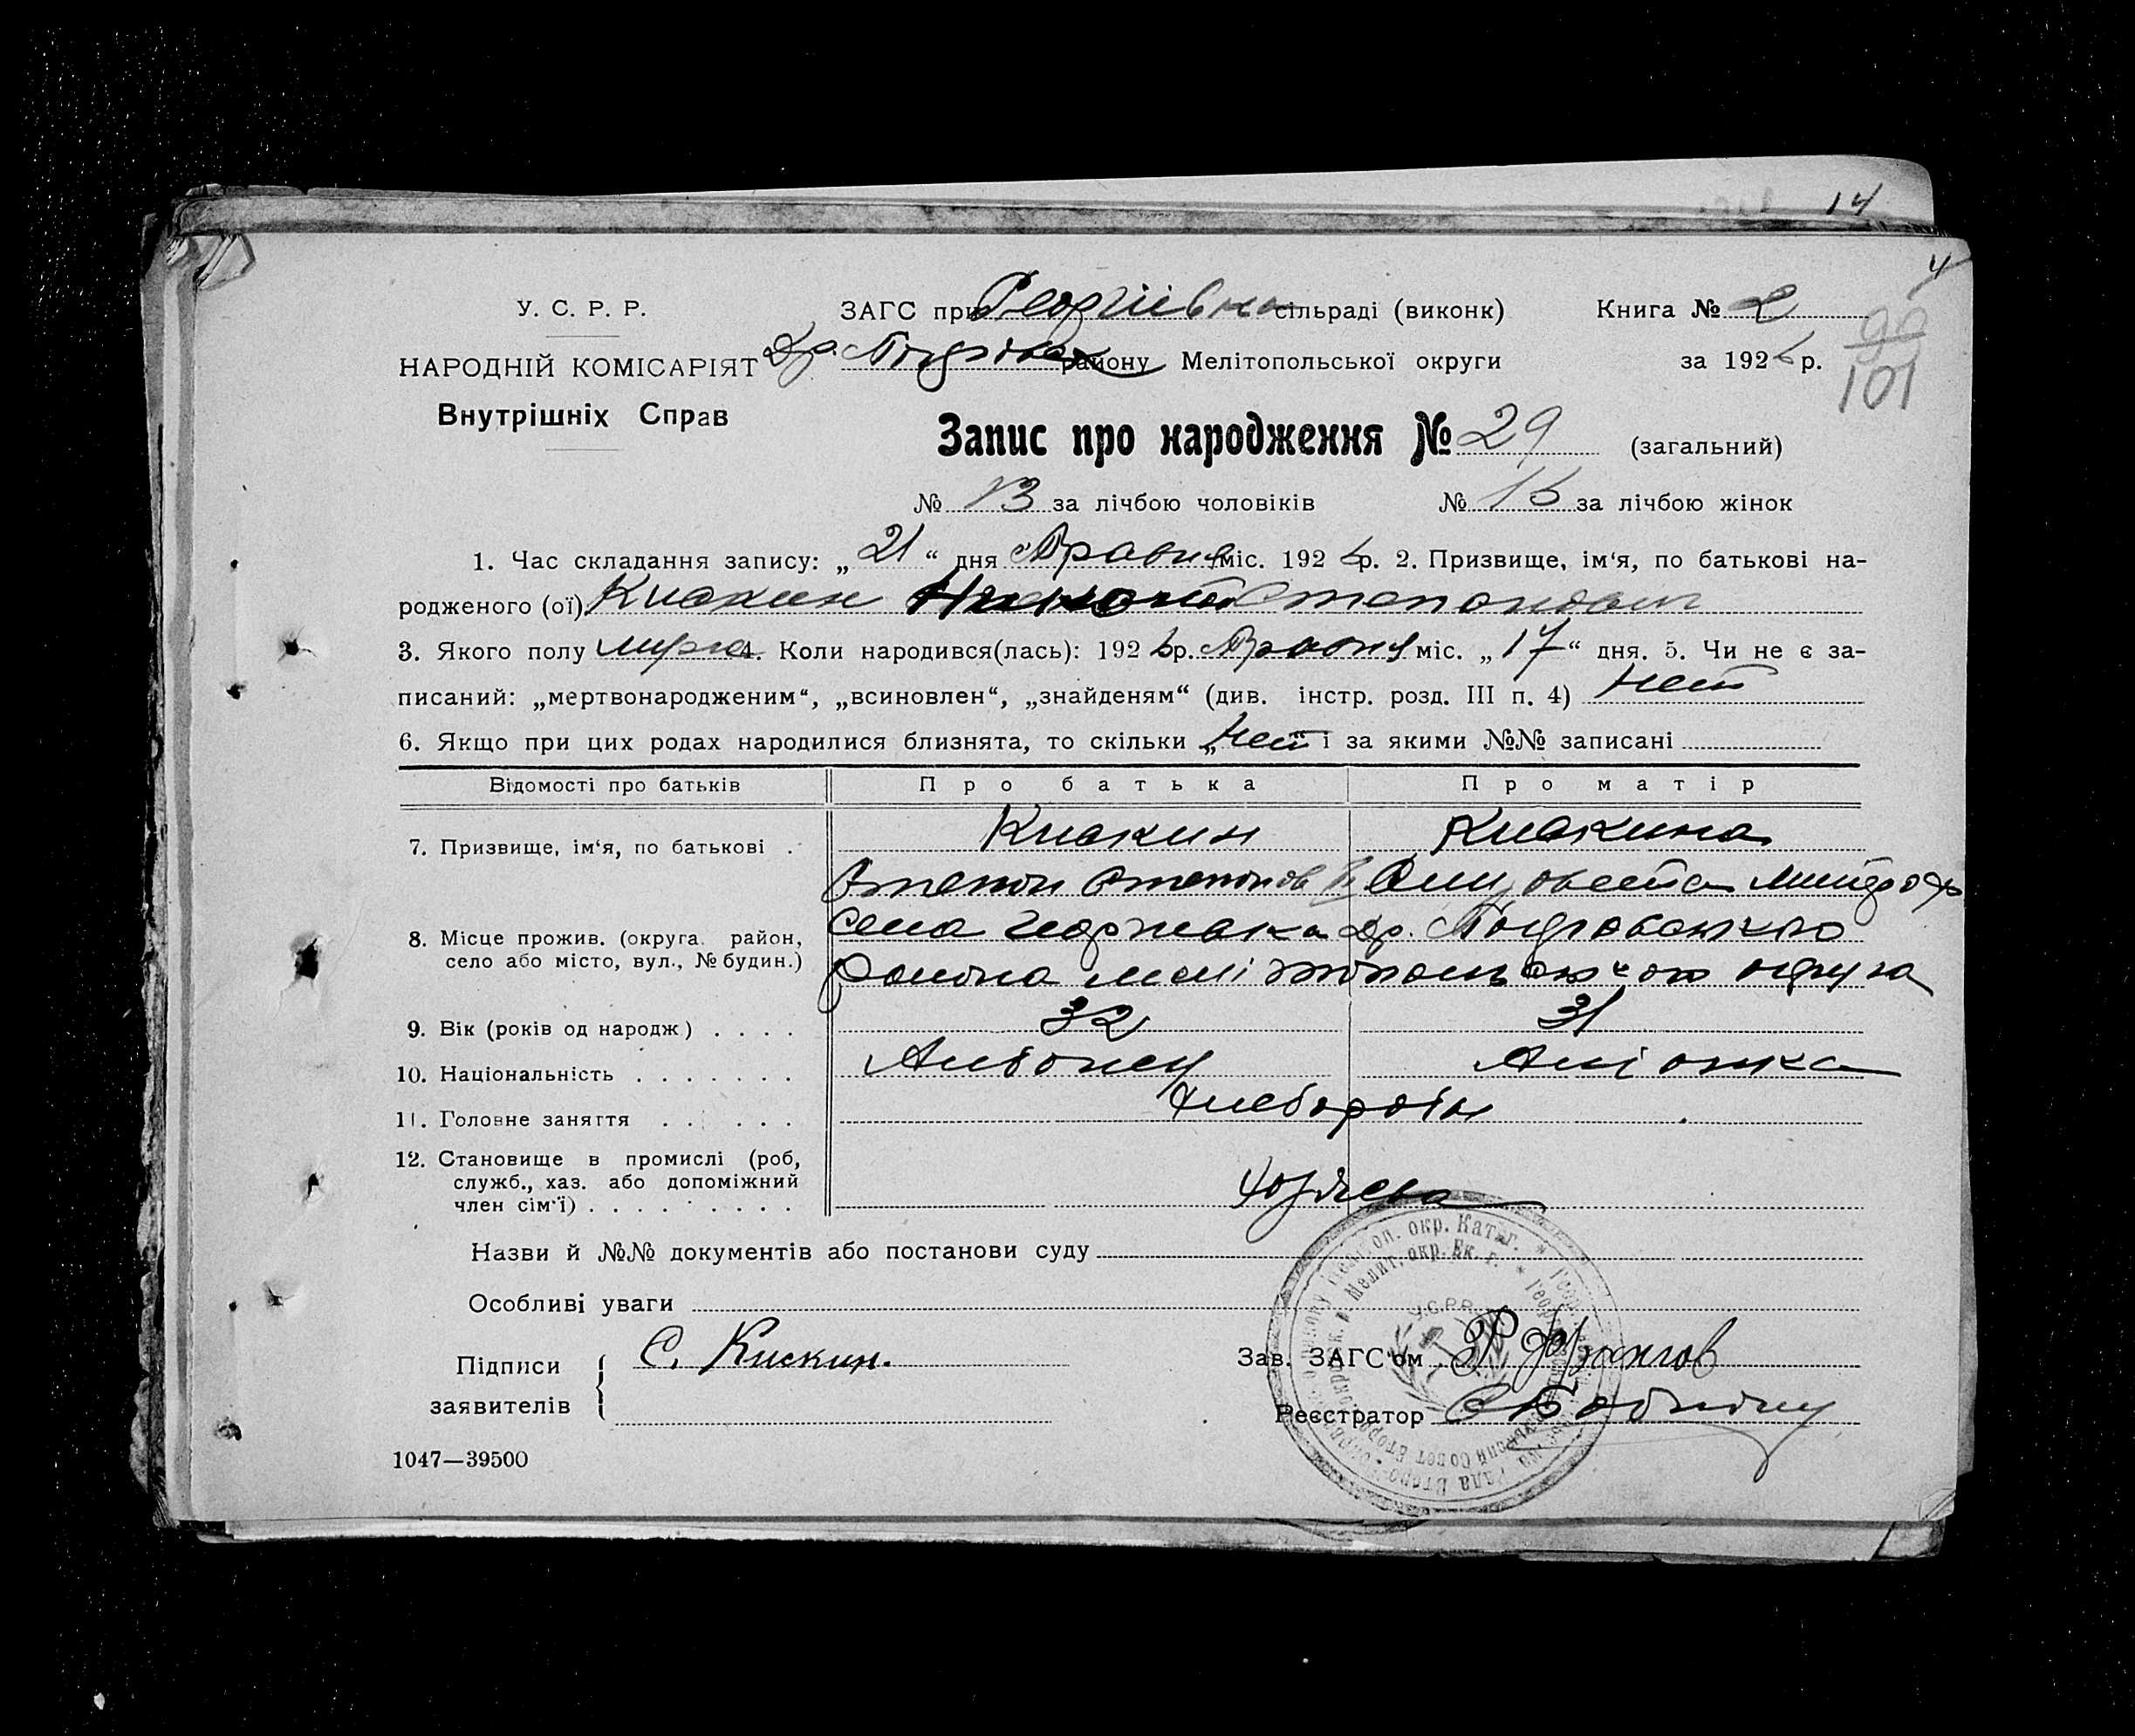 14
4
У. С. Р. Р.
ЗАГС при Георгіївка сільраді (виконк)
Книга № 2
НАРОДНІЙ КОМІСАРІЯТ
району Мелітопольської округи
за 1926 р.
99
101
Внутрішніх Справ
Запис про народження № 29 (загальний)
№ 13 за лічбою чоловіків № 16 за лічбою жінок
1. Час складання запису: „ 21 “ дня Травня міс. 1926 р. 2. Призвище, ім‘я, по батькові на-
родженого (ої) Кискин Степанович
3. Якого полу мужа 4. Коли народився(лась): 1926 р. Травня міс. „ 17 “ дня. 5. Чи не є за-
писаний: „мертвонародженим“, „всиновлен“, „знайденям“ (див. інстр. розд. III п. 4) нет
6. Якщо при цих родах народилися близнята, то скільки „ нет “ і за якими №№ записані
Відомості про батьків Про батька Про матір
7. Призвище, ім‘я, по батькові . Кискин Кискина
Степан Степанов Елизовета Митроф
8. Місце прожив. (округа. район, село або місто, вул., № будин.) Села Георгиевка
района Мелітопольского округа
9. Вік (років од народж.) . . . . 32 31
10. Національність . . . . . . . Албонец
11. Головне заняття . . . . . . Хлебороби
12. Становище в промислі (роб,
служб., хаз. або допоміжний
член сім‘ї) . . . . . . . . . Хозяева
Назви й №№ документів або постанови суду
Особливі уваги
У.С.Р.Р.
Підписи
заявителів
С. Кискин.
Зав. ЗАГС‘ом
Реєстратор
1047—39500